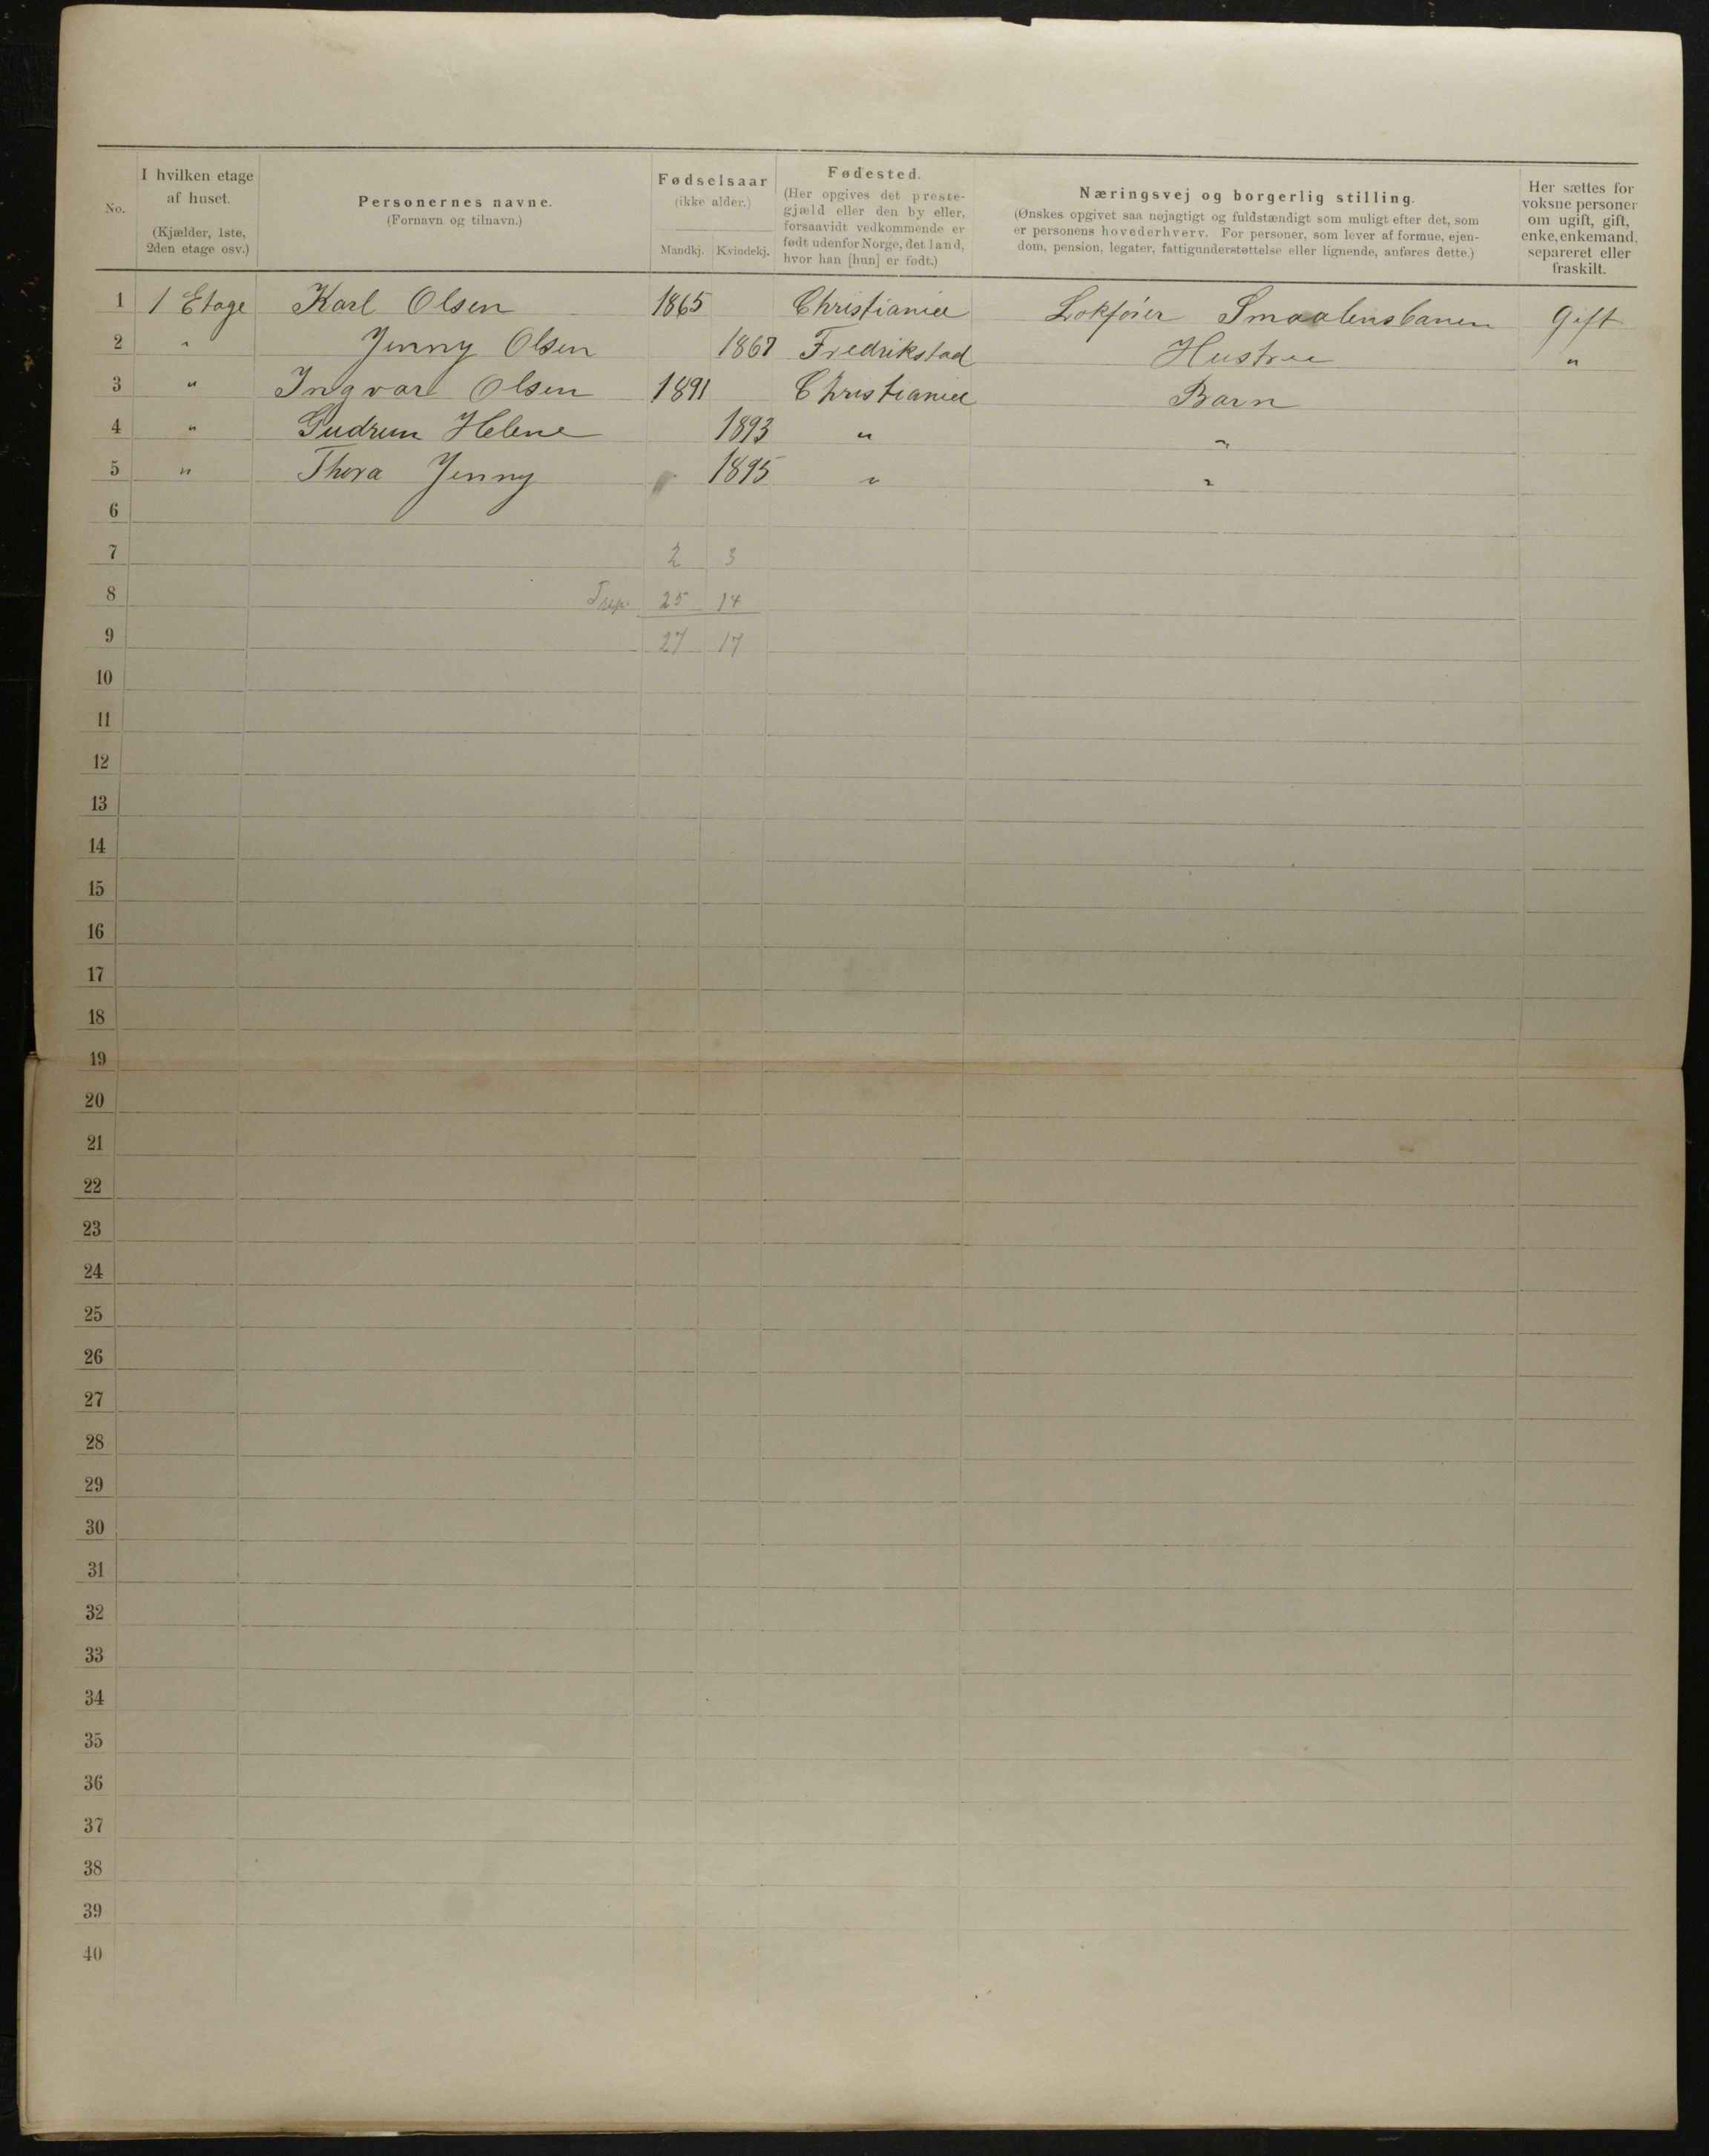 No.
I hvilken etage af huset.
(Kjælder, 1ste, 2den etage osv.)
Personernes navne.
(Fornavn og tilnavn.)
Fødselsaar
(ikke alder.)
Mandkj. Kvindekj.
Fødested.
(Her opgives det preste-
gjæld eller den by eller,
forsaavidt vedkommende er
født udenfor Norge, det land,
hvor han [hun] er født.)
Næringsvej og borgerlig stilling.
(Ønskes opgivet saa nøjagtigt og fuldstændigt som muligt efter det, som
er personens hovederhverv. For personer, som lever af formue, ejen-
dom, pension, legater, fattigunderstøttelse eller lignende, anføres dette.)
Her sættes for
voksne personer
om ugift, gift,
enke, enkemand,
separeret eller
fraskilt.
1 1 Etage Karl Olsen 1865 Christiania Lokfører Smaalensbanen Gift
2 " Jenny Olsen 1867 Fredrikstad Hustru "
3 " Ingvarl Olsen 1891 Christiania Barn
4 " Gudrun Helene 1893 " "
5 " Thora Jenny 1895 " "
6
7 2 3
8 25 14
9 27 17
10
11
12
13
14
15
16
17
18
19
20
21
22
23
24
25
26
27
28
29
30
31
32
33
34
35
36
37
38
39
40